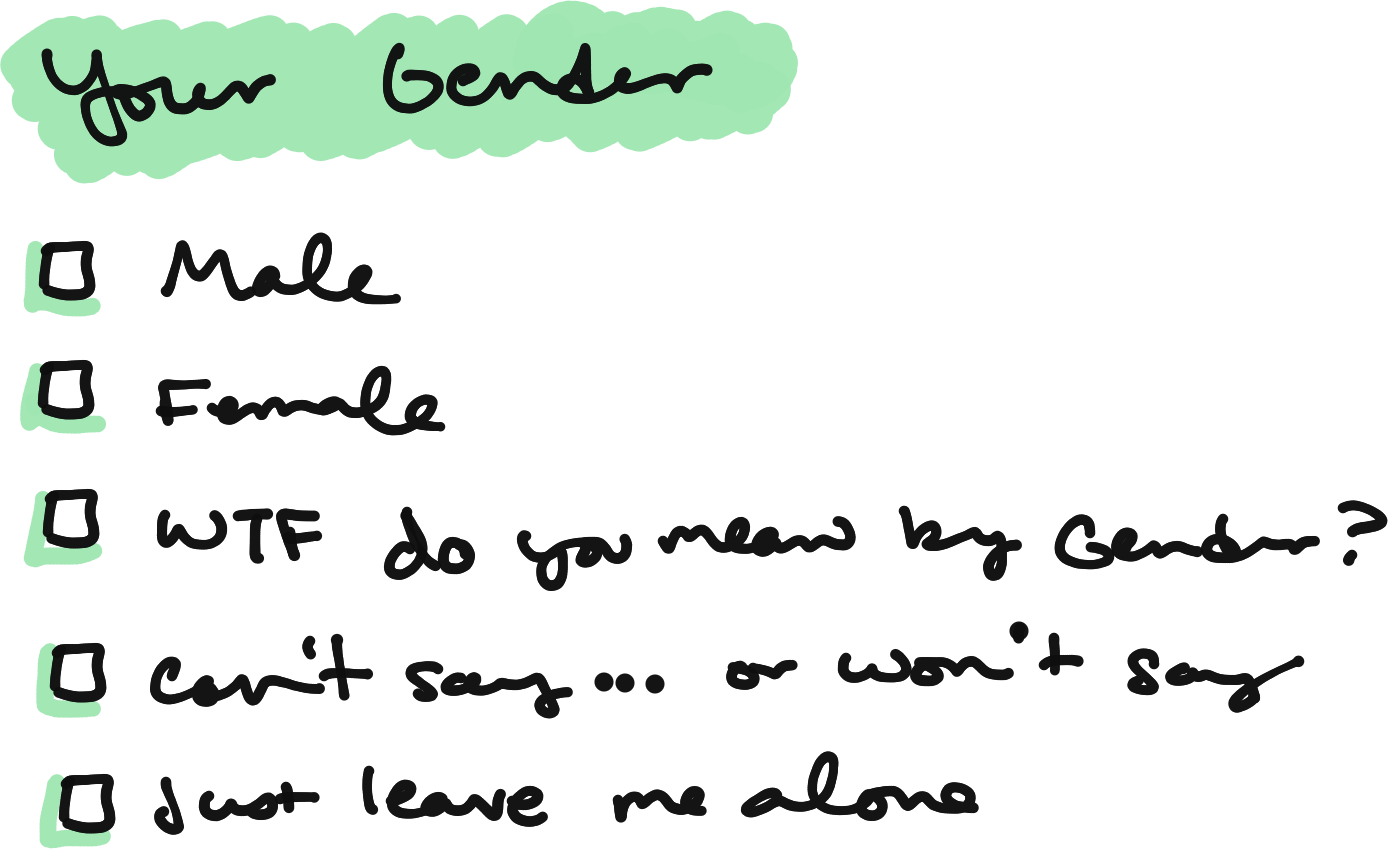 Your Gender
Male
Female
WTF do you mean by Gender?
Can't say... or won't say
Just leave me alone